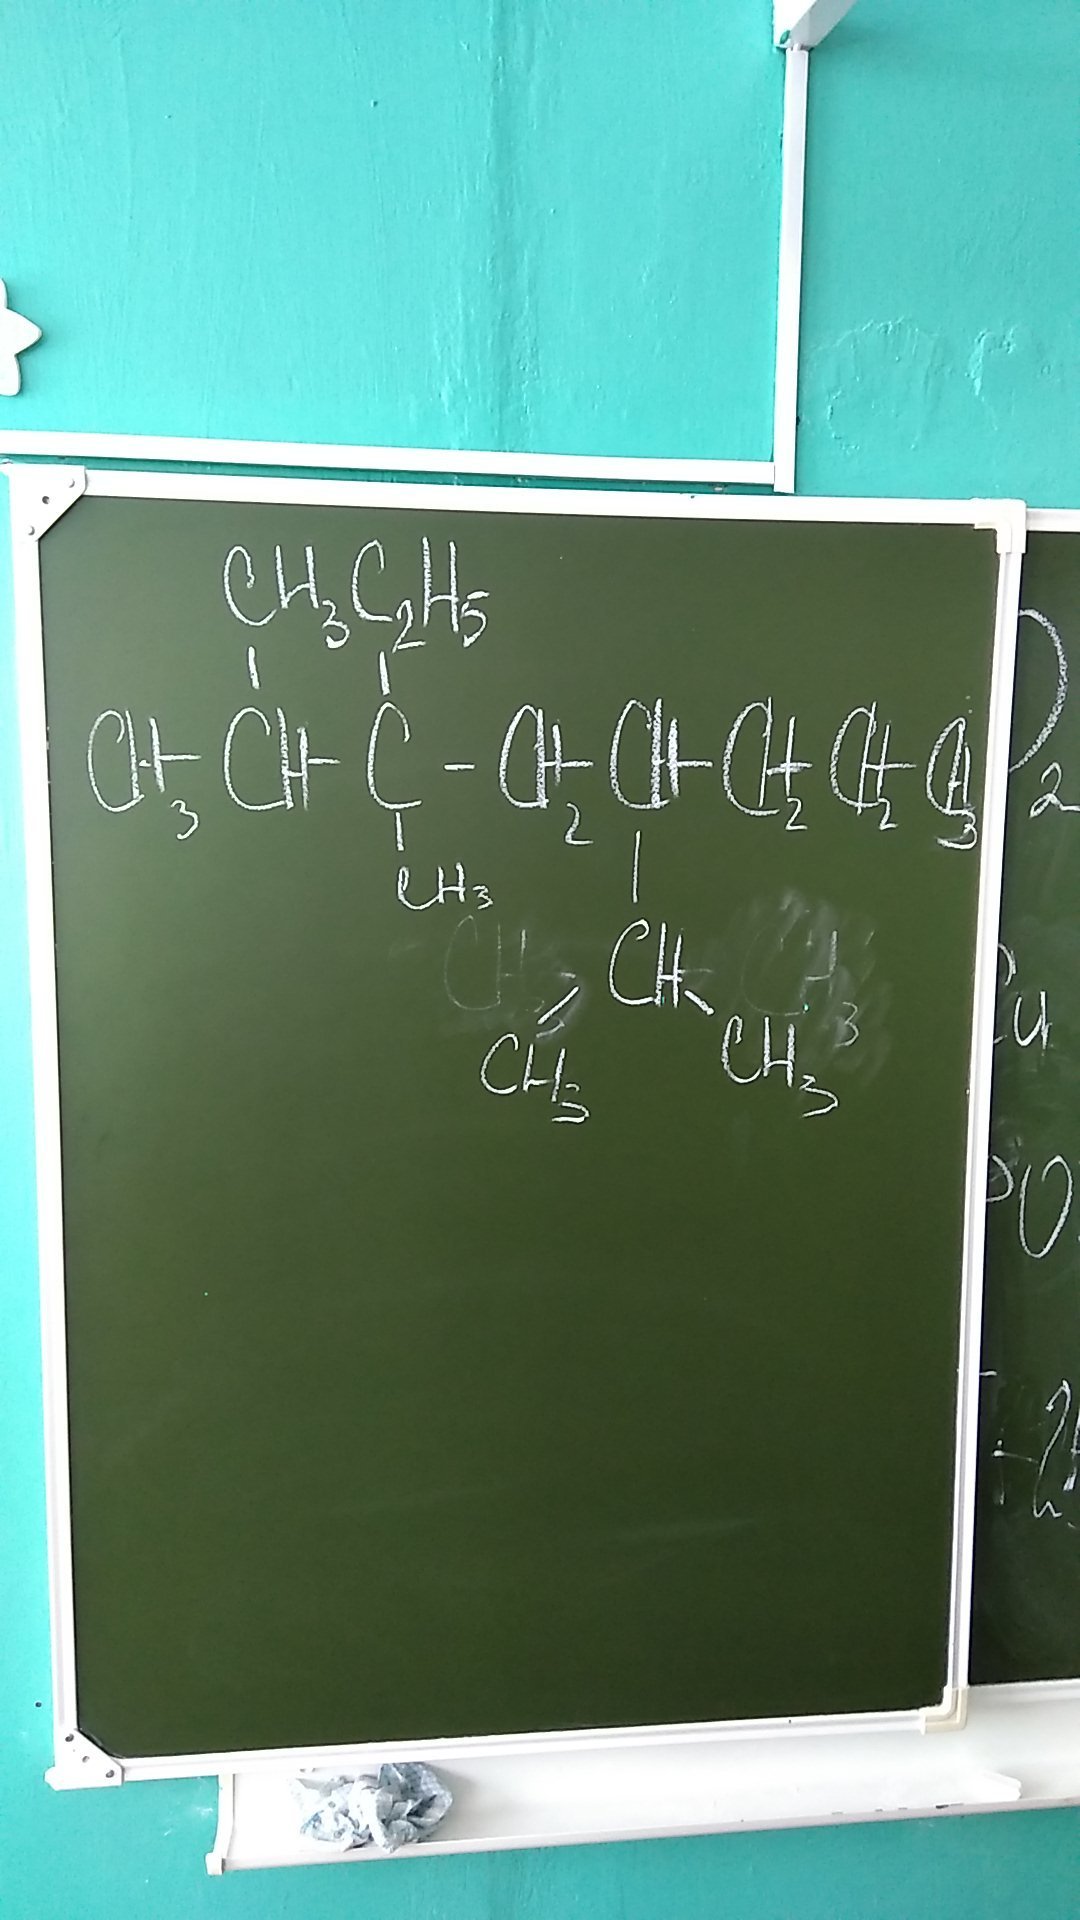 CH₃ C₂H₅
| |
CH₃-CH-C-CH₂-CH-CH₂-CH₂-CH₃
| |
CH₃
CH
CH₃ CH₃
2
Cu